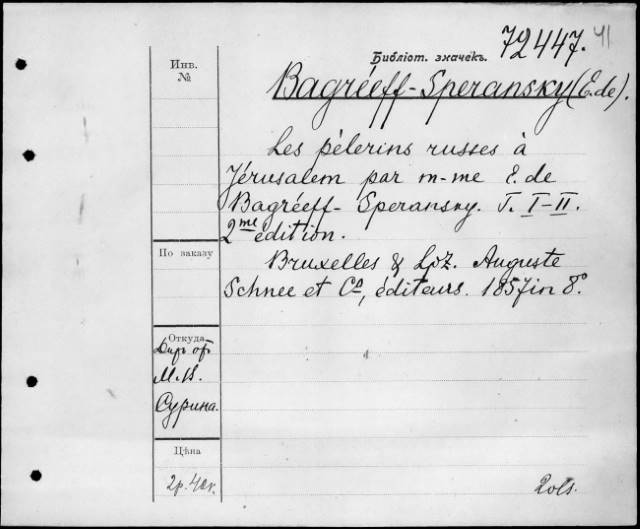 72447. 41
Библіот. значекъ.
Инв.
№
Bagréeff-Speransky (E. de).
Les pèlerins russes à
Jérusalem par m-me E. de
Bagréeff-Speransky. T. I-II.
2me édition.
По заказу
Bruxelles & Lpz. Auguste
Schnee et Co, éditeurs. 1857 in 8°.
Откуда
М.
Сурина.
Цѣна
2р. 40к.
2 vols.